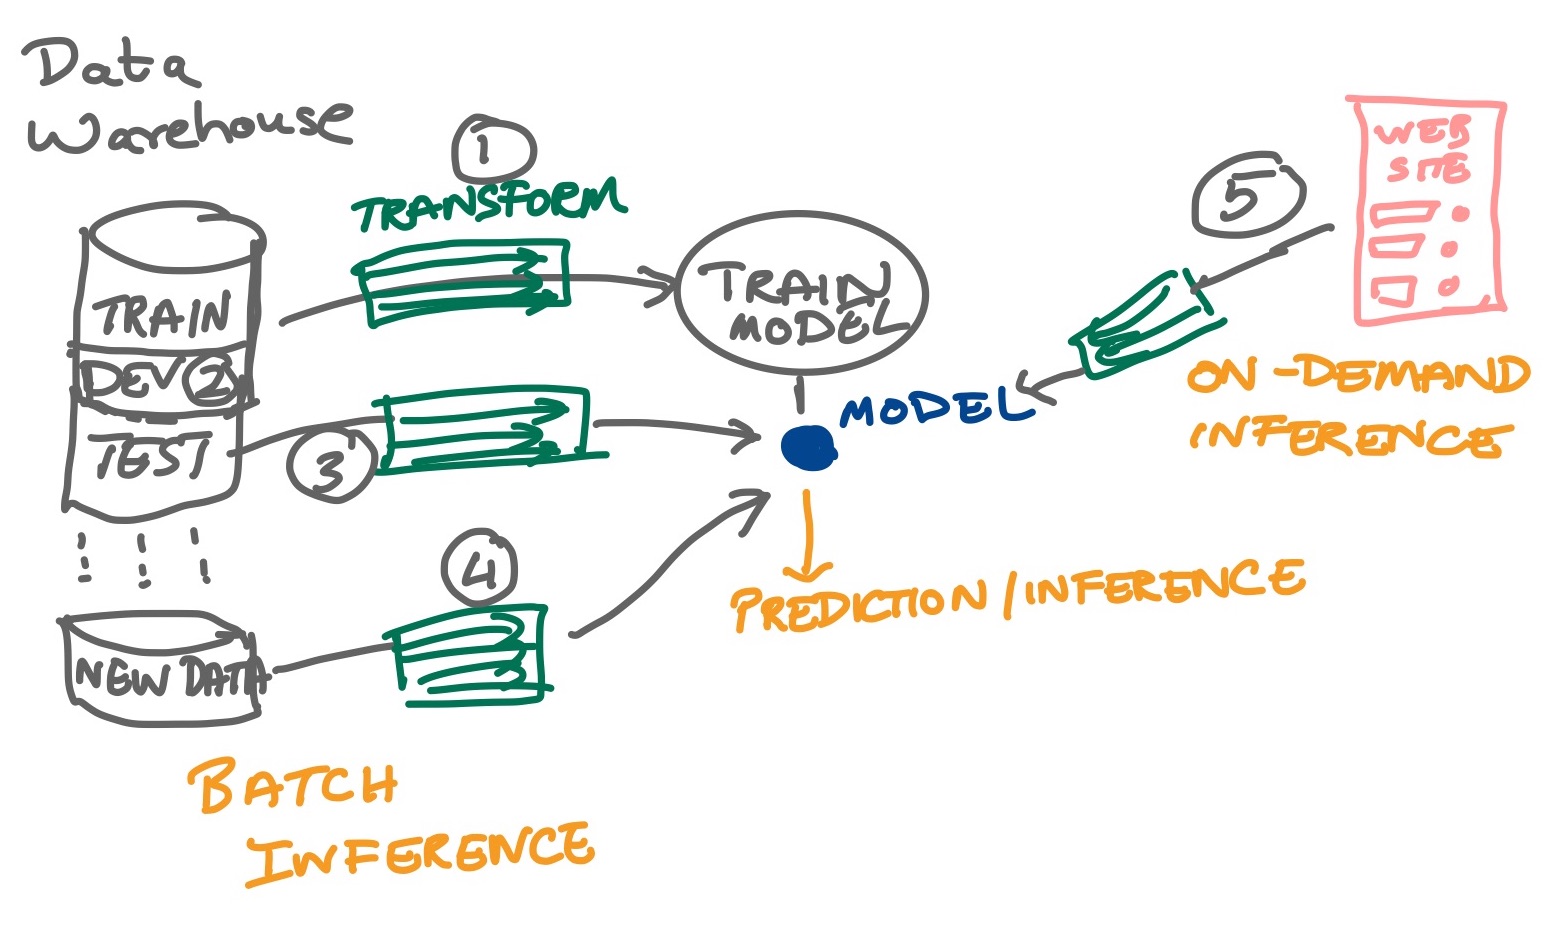 Data
Warehouse
1
TRANSFORM
TRAIN
DEV 2
TEST
3
TRAIN
MODEL
MODEL
5
WEB
SITE
ON-DEMAND
INFERENCE
4
NEW DATA
PREDICTION/INFERENCE
BATCH
INFERENCE